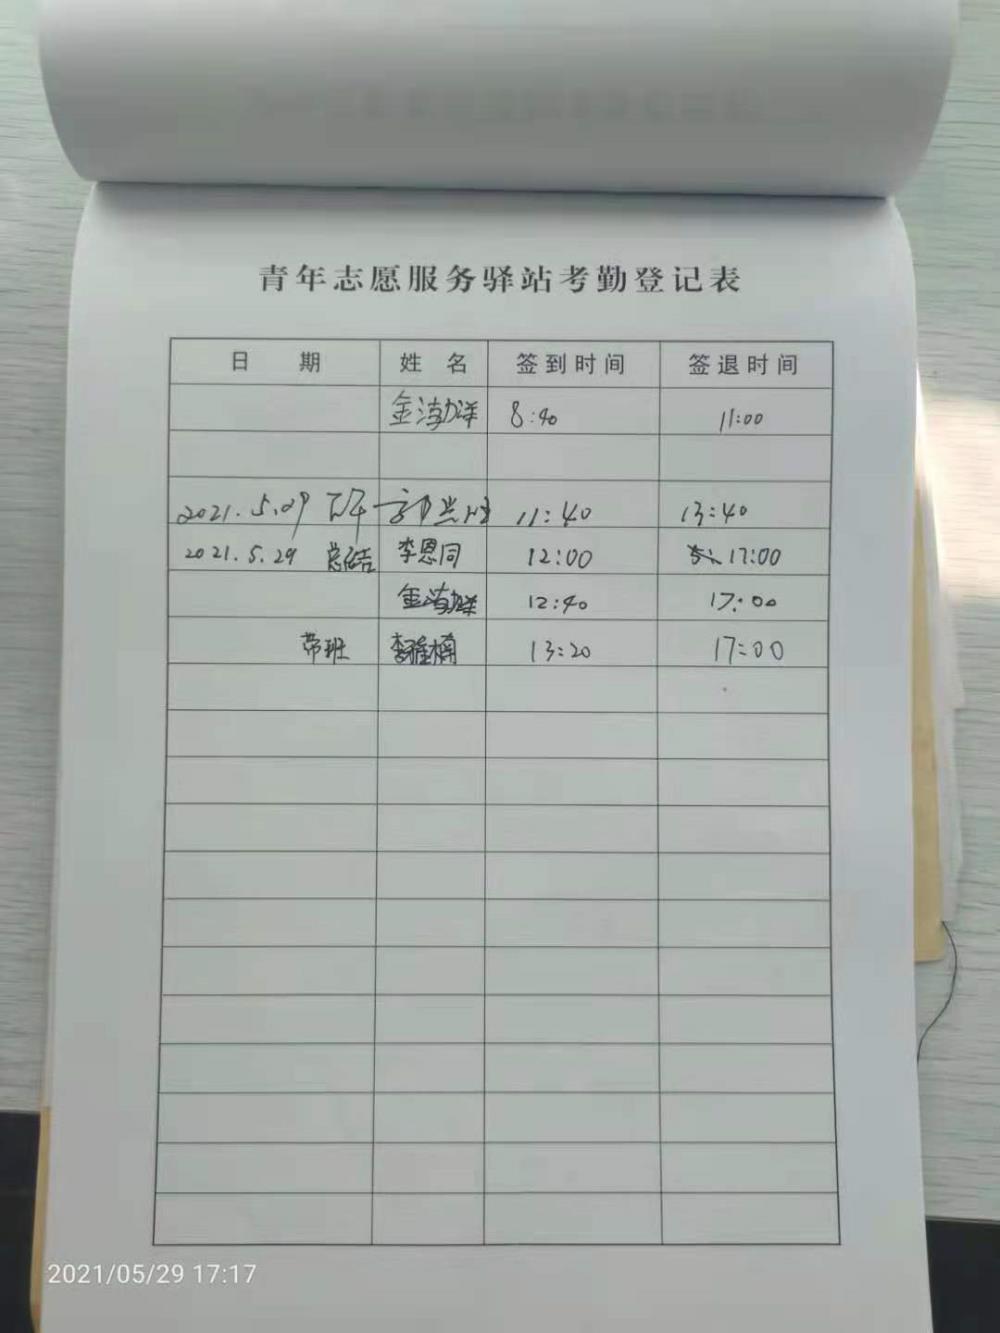 青年志愿服务驿站考勤登记表
日期 姓名 签到时间 签退时间
金渤洋 8:40 11:00
2021.5.29 下午 11:40 13:40
2021.5.29 总结 李恩同 12:00 17:00
金渤洋 12:40 17:00
带班 13:20 17:00
2021/05/29 17:17